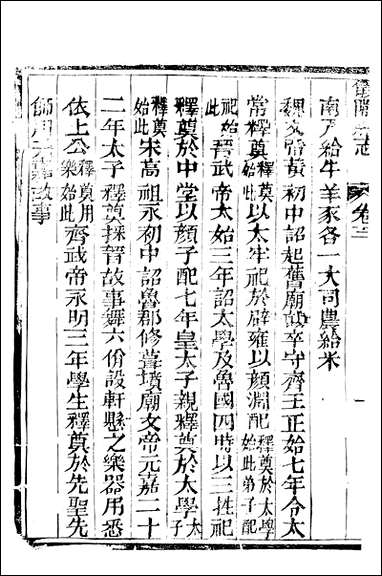 志 卷三
南尹給牛羊豕各一大司農給米
魏文帝黃初中詔起舊廟設卒守齊王正始七年令太
常釋奠釋奠始此以太牢祀於辟雍以顏淵配釋奠於太學始此弟子配
祀始此晉武帝太始三年詔太學及魯國四時以三牲祀
釋奠於中堂以顏子配七年皇太子親釋奠於太學太子
釋奠始此宋高祖永初中詔魯郡修葺墳廟文帝元嘉二十
二年太子釋奠採晉故事舞六佾設軒懸之樂器用悉
依上公釋奠用樂始此齊武帝永明三年學生釋奠於先聖先
師用元嘉故事